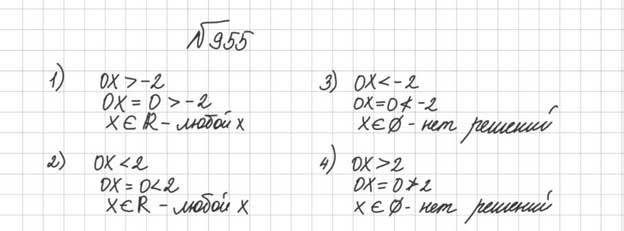 №955
1) 0x > -2
0x = 0 > -2
x ∈ R - любой x
2) 0x < 2
0x = 0 < 2
x ∈ R - любой x
3) 0x < -2
0x = 0 ≮ -2
x ∈ Ø - нет решений
4) 0x > 2
0x = 0 ≯ 2
x ∈ Ø - нет решений